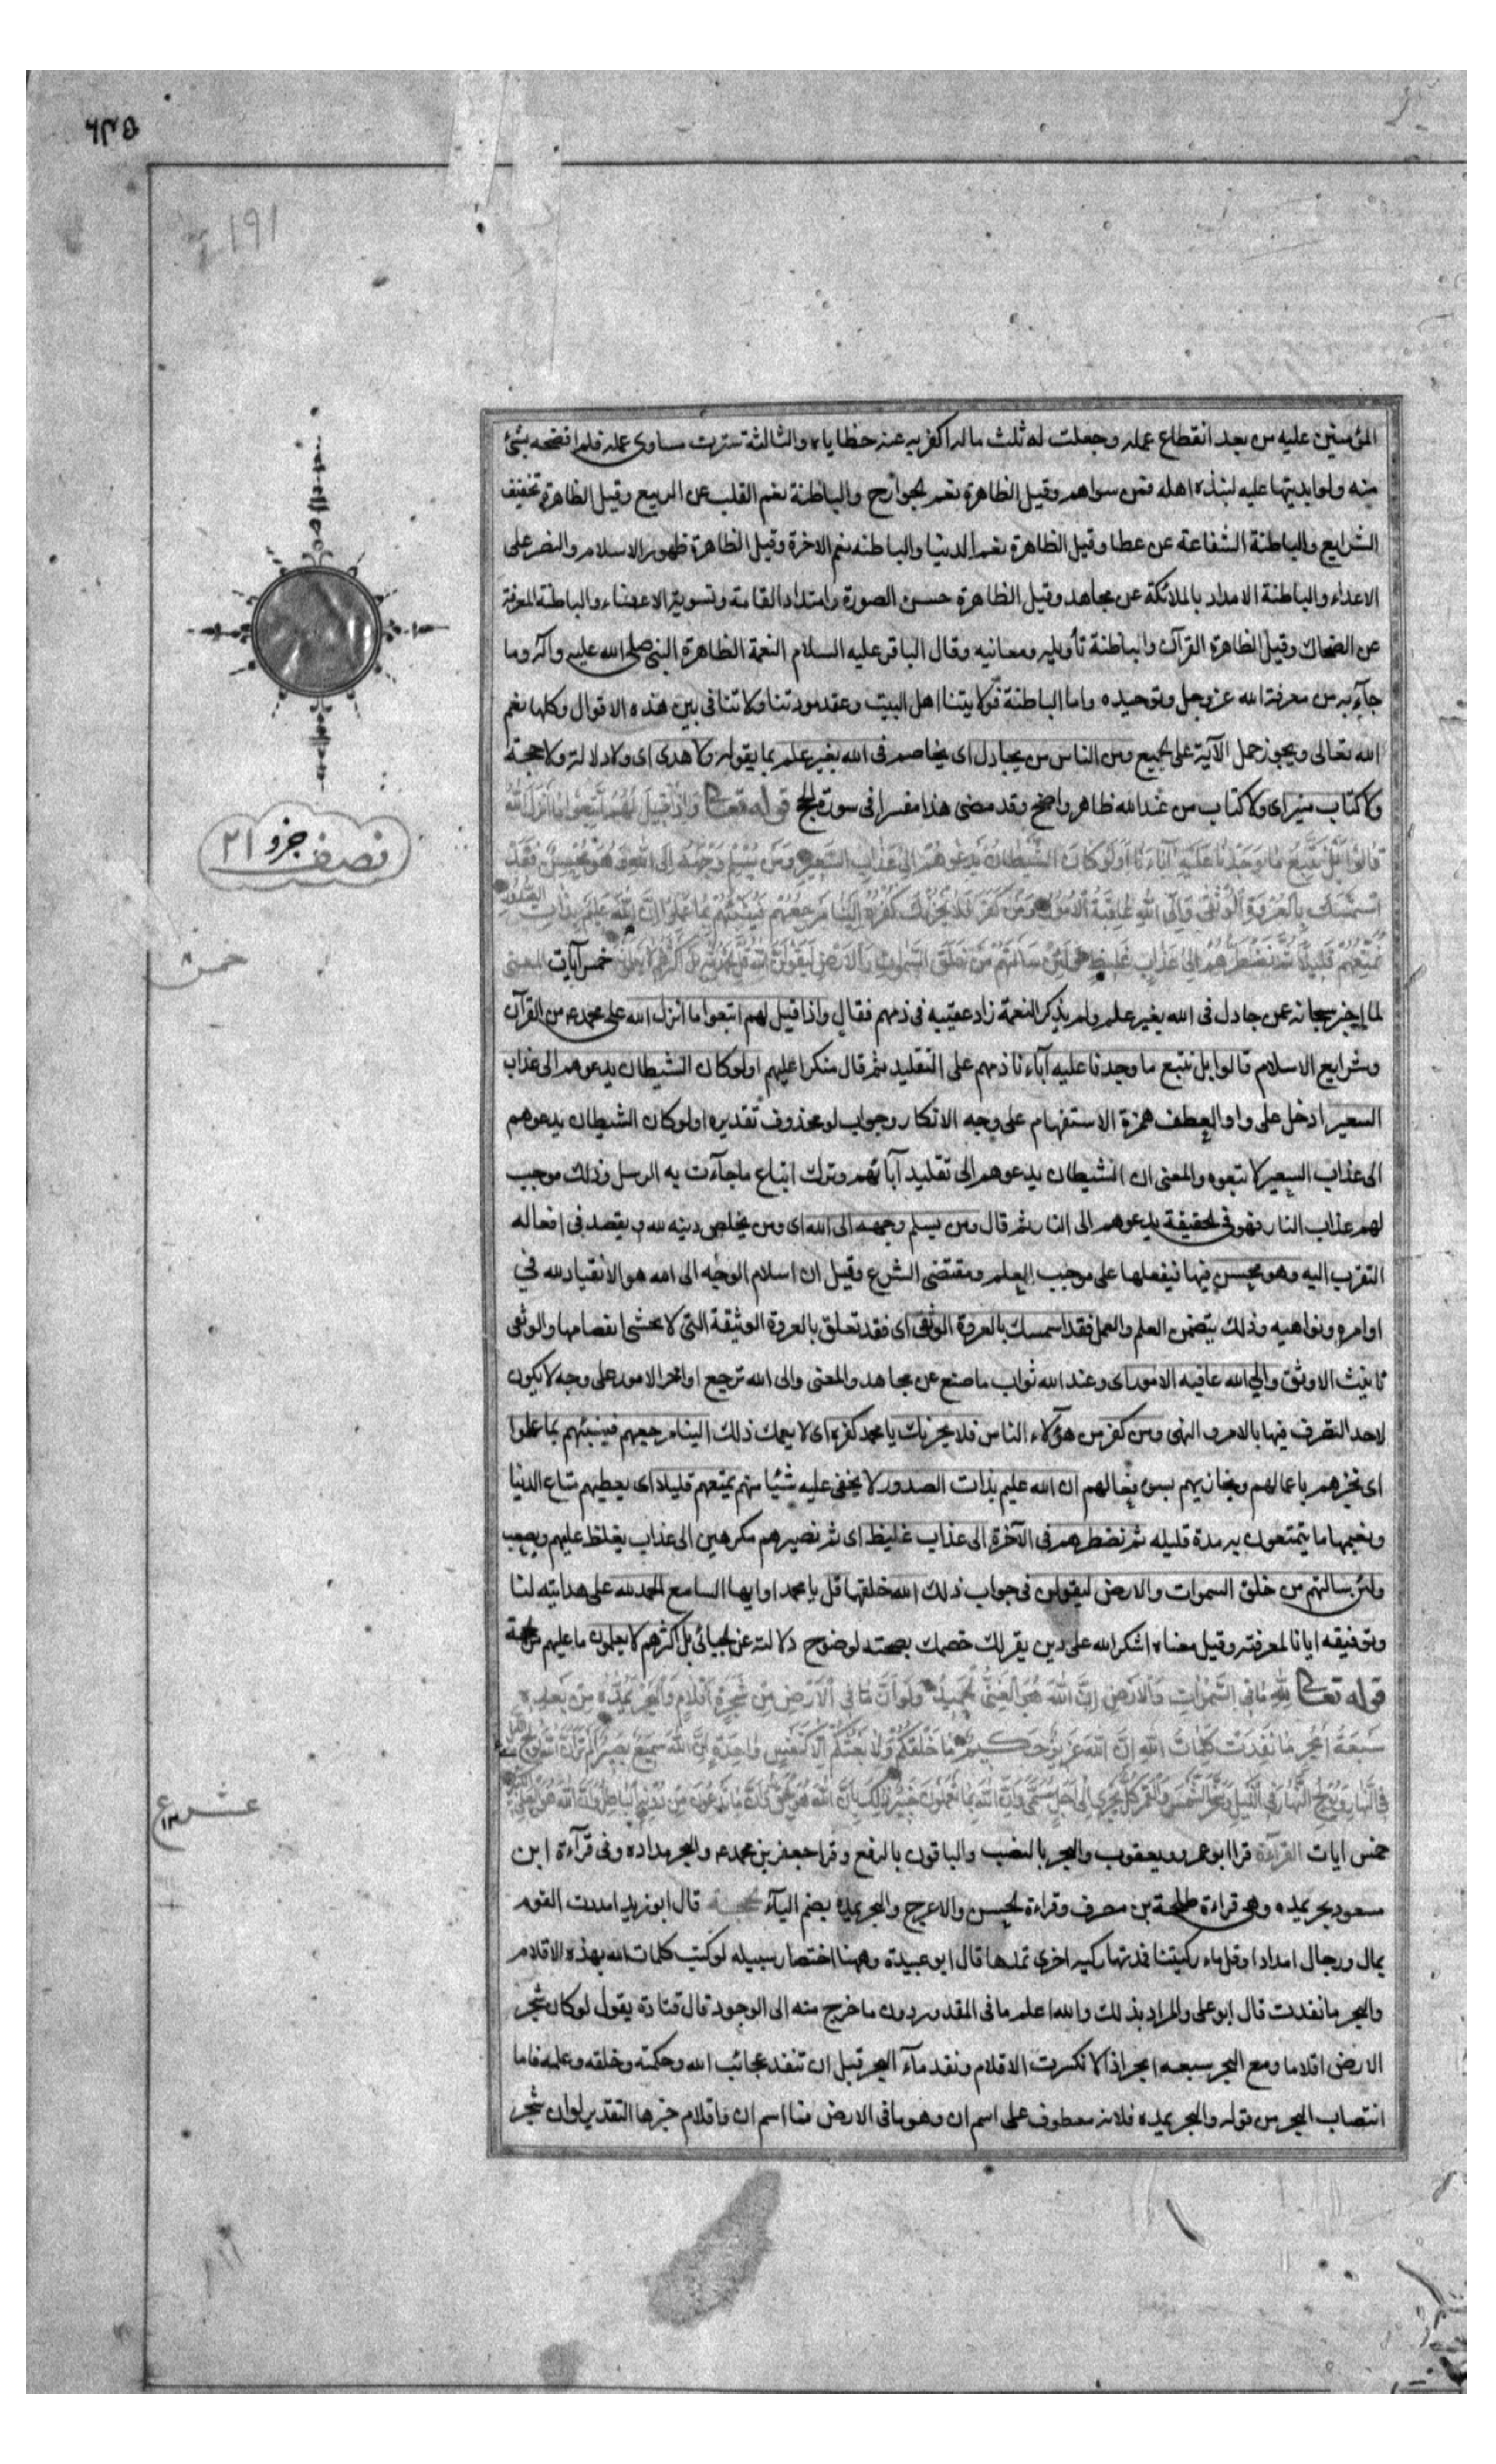 المؤمنين عليه من بعد انقطاع عمله وجعلت له ثلث ماله اكفر به عنه خطاياه والثالثة سترت مساوى عمله فلم افضحه بشئ
منه ولو ابديتها عليه لنبذه اهله فمن سواهم وقيل الظاهرة نعم الجوارح والباطنة نعم القلب عن الربيع وقيل الظاهرة تخفيف
الشرايع والباطنة الشفاعة عن عطا وقيل الظاهرة نعم الدنيا والباطنه نعم الاخرة وقيل الظاهرة ظهور الاسلام والنصر على
الاعداء والباطنة الامداد بالملائكة عن مجاهد وقيل الظاهرة حسن الصورة وامتداد القامة وتسوية الاعضاء والباطنة المعرفة
عن الضحاك وقيل الظاهرة القرآن والباطنة تأويله ومعانيه وقال الباقر عليه السلام النعمة الظاهرة النبى صلى الله عليه وآله وما
جآء به من معرفة الله عز وجل وتوحيده واما الباطنة فولايتنا اهل البيت وعقد مودتنا ولا تنافى بين هذه الاقوال وكلها نعم
الله تعالى ويجوز حمل الآية على الجميع ومن الناس من يجادل اى يخاصم فى الله بغير علم بما يقوله ولا هدى اى ولا دلالة ولا حجة
ولا كتاب منير اى ولا كتاب من عند الله ظاهر واضح وقد مضى هذا مفسرا فى سورة الحج قوله تعالى وَاِذَا قِيلَ لَهُمُ اتَّبِعُوا مَا اَنْزَلَ اللهُ
قَالُوا بَلْ نَتَّبِعُ مَا وَجَدْنَا عَلَيْهِ آبَاءَنَا اَوَلَوْ كَانَ الشَّيْطَانُ يَدْعُوهُمْ اِلَى عَذَابِ السَّعِيرِ وَمَنْ يُسْلِمْ وَجْهَهُ اِلَى اللهِ وَهُوَ مُحْسِنٌ فَقَدِ
اسْتَمْسَكَ بِالْعُرْوَةِ الْوُثْقَى وَاِلَى اللهِ عَاقِبَةُ الْاُمُورِ وَمَنْ كَفَرَ فَلَا يَحْزُنْكَ كُفْرُهُ اِلَيْنَا مَرْجِعُهُمْ فَنُنَبِّئُهُمْ بِمَا عَمِلُوا اِنَّ اللهَ عَلِيمٌ بِذَاتِ الصُّدُورِ
نُمَتِّعُهُمْ قَلِيلًا ثُمَّ نَضْطَرُّهُمْ اِلَى عَذَابٍ غَلِيظٍ وَلَئِنْ سَأَلْتَهُمْ مَنْ خَلَقَ السَّمٰوَاتِ وَالْاَرْضَ لَيَقُولُنَّ اللهُ قُلِ الْحَمْدُ لِلّٰهِ بَلْ اَكْثَرُهُمْ لَا يَعْلَمُونَ خمس آيات المعنى
لما اخبر سبحانه عمن جادل فى الله بغير علم ولم يذكر النعمة زاد عقيبه فى ذمهم فقال واذا قيل لهم اتبعوا ما انزل الله على محمد من القرآن
وشرايع الاسلام قالوا بل نتبع ما وجدنا عليه آباءنا ذمهم على التقليد ثم قال منكرا عليهم اولو كان الشيطان يدعوهم الى عذاب
السعير ادخل على واو العطف همزة الاستفهام على وجه الانكار وجواب لو محذوف تقديره اولو كان الشيطان يدعوهم
الى عذاب السعير لاتبعوه والمعنى ان الشيطان يدعوهم الى تقليد آبائهم وترك اتباع ما جآءت به الرسل وذلك موجب
لهم عذاب النار فهو فى الحقيقة يدعوهم الى النار ثم قال ومن يسلم وجهه الى الله اى ومن يخلص دينه لله ويقصد فى افعاله
التقرب اليه وهو محسن فيها فيفعلها على موجب العلم ومقتضى الشرع وقيل ان اسلام الوجه الى الله هو الانقياد لله فى
اوامره ونواهيه وذلك يتضمن العلم والعمل فقد استمسك بالعروة الوثقى اى فقد تعلق بالعروة الوثيقة التى لا يخشى انفصامها والوثقى
تانيث الاوثق والى الله عاقبة الامور اى وعند الله ثواب ما صنع عن مجاهد والمعنى والى الله ترجع اواخر الامور على وجه لا يكون
لاحد التصرف فيها بالامر والنهى ومن كفر من هؤلاء الناس فلا يحزنك يا محمد كفره اى لا يهمك ذلك الينا مرجعهم فننبئهم بما عملوا
اى نخبرهم باعمالهم ويجازيهم بسوء افعالهم ان الله عليم بذات الصدور لا يخفى عليه شئيا منهم نمتعهم قليلا اى يعطيهم متاع الدنيا
ونعيمها ما يتمتعون به مدة قليله ثم نضطرهم فى الآخرة الى عذاب غليظ اى ثم نصيرهم مكرهين الى عذاب يغلظ عليهم ويصعب
ولئن سالتهم من خلق السموات والارض ليقولن فى جواب ذلك الله خلقها قل يا محمد او ايها السامع الحمد لله على هدايته لنا
وتوفيقه ايانا لمعرفته وقيل معناه اشكر الله على دين يقر لك خصمك بصحته لوضوح دلالته عن الجبائى بل اكثرهم لا يعلمون ما عليهم من الحجة
قوله تعالى لِلّٰهِ مَا فِى السَّمٰوَاتِ وَالْاَرْضِ اِنَّ اللهَ هُوَ الْغَنِىُّ الْحَمِيدُ وَلَوْ اَنَّ مَا فِى الْاَرْضِ مِنْ شَجَرَةٍ اَقْلَامٌ وَالْبَحْرُ يَمُدُّهُ مِنْ بَعْدِهِ
سَبْعَةُ اَبْحُرٍ مَا نَفِدَتْ كَلِمَاتُ اللهِ اِنَّ اللهَ عَزِيزٌ حَكِيمٌ مَا خَلْقُكُمْ وَلَا بَعْثُكُمْ اِلَّا كَنَفْسٍ وَاحِدَةٍ اِنَّ اللهَ سَمِيعٌ بَصِيرٌ اَلَمْ تَرَ اَنَّ اللهَ يُولِجُ اللَّيْلَ
فِى النَّهَارِ وَيُولِجُ النَّهَارَ فِى اللَّيْلِ وَسَخَّرَ الشَّمْسَ وَالْقَمَرَ كُلٌّ يَجْرِى اِلَى اَجَلٍ مُسَمًّى وَاَنَّ اللهَ بِمَا تَعْمَلُونَ خَبِيرٌ ذٰلِكَ بِاَنَّ اللهَ هُوَ الْحَقُّ وَاَنَّ مَا يَدْعُونَ مِنْ دُونِهِ الْبَاطِلُ وَاَنَّ اللهَ هُوَ الْعَلِىُّ الْكَبِيرُ
خمس ايات القراءة قرا ابو عمرو ويعقوب والبحر بالنصب والباقون بالرفع وقرا جعفر بن محمد والبحر مداده وفى قرآءة ابن
مسعود بحر يمده وهى قراءة طلحة بن مصرف وقراءة الحسن والاعرج والبحر يمده بضم اليآء الحجة قال ابو زيد امددت القوم
بمال ورجال امدادا وقل ماء ركيتنا فمدتها ركيه اخرى تمدها قال ابو عبيدة وههنا اختصار سبيله لو كتب كلمات الله بهذه الاقلام
والبحر ما نفدت قال ابو على والمراد بذلك والله اعلم ما فى المقدور دون ما خرج منه الى الوجود قال قتادة يقول لو كان شجر
الارض اقلاما ومع البحر سبعه ابحر اذا لانكسرت الاقلام ونفد مآء البحر قبل ان تنفد عجائب الله وحكمته وخلقه وعلمه فاما
انتصاب البحر من قوله والبحر يمده فلانه معطوف على اسم ان وهو ما فى الارض فما اسم ان واقلام خبرها التقدير لو ان شجر
نصف جزو ٢١
خمس
عشر ع
191